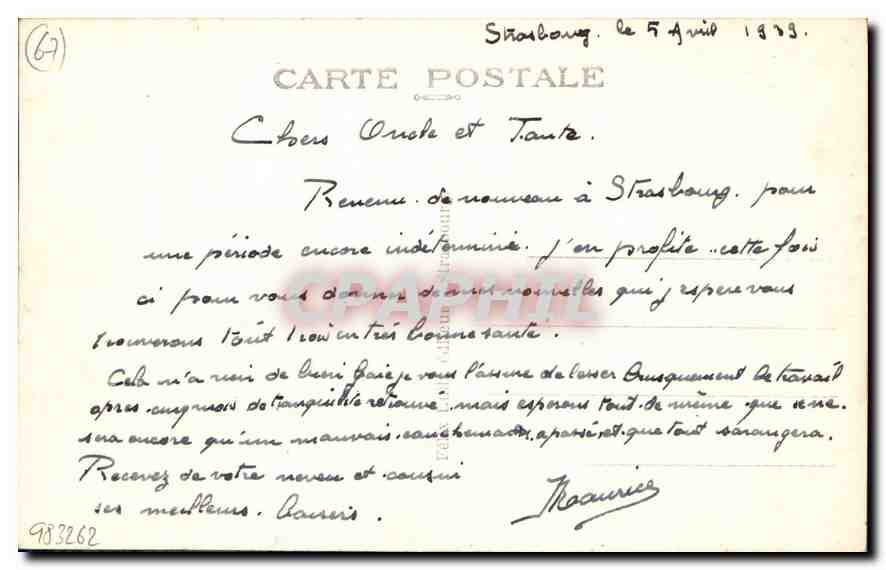 (67)
Strasbourg. le 5 Avril 1939.
CARTE POSTALE
Chers Oncle et Tante.
Revenu de nouveau à Strasbourg. pour
une période encore indéterminé. j'en profite cette fois
ci pour vous donner de mes nouvelles qui j'espere vous
trouverons tout trois en très bonne sante.
Cela n'a rien de bien gaie je vous l'assure de lesser brusquement le travail
apres cinq mois de tranquilité retrouvé, mais esperons tout de même que se ne
sera encore qu'un mauvais cauchemar a passé et que tout sarangera.
Recevez de votre neveu et cousin
ses meilleurs. baisers.
Maurice
983262
CPAPHIL
Editeur Strasbourg